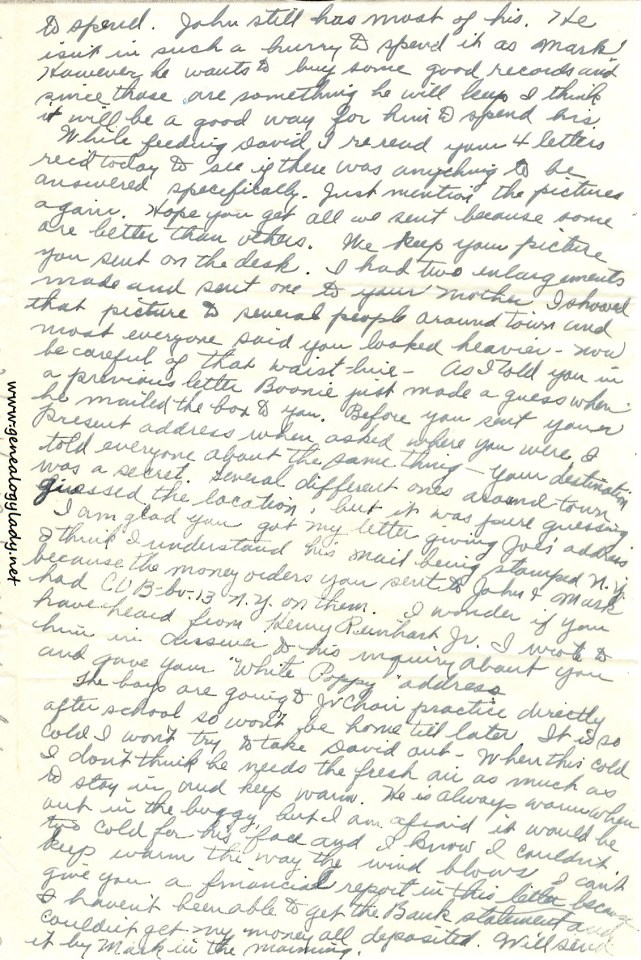 to spend. John still has most of his. He
isn't in such a hurry to spend it as Mark!
However he wants to buy some good records and
since those are something he will keep I think
it will be a good way for him to spend his.
While feeding David I re read your 4 letters
rec'd today to see if there was anything to be
answered specifically. Just mention the pictures
again. Hope you get all we sent because some
are better than others. We keep your picture
you sent on the desk. I had two enlargements
made and sent one to your Mother. I showed
that picture to several people around town and
most everyone said you looked heavier - now
be careful of that waist-line - As I told you in
a previous letter Boonie just made a guess when
he mailed the box to you. Before you sent your
present address when asked where you were I
told everyone about the same thing - Your destination
was a secret. Several different ones around town
guessed the location, but it was pure guessing.
I am glad you got my letter giving Joe's address
I think I understand his mail being stamped N.Y.
because the money orders you sent to John & Mark
had CUB-bv-13 N.Y. on them. I wonder if you
have heard from Henry Reinhart Jr. I wrote to
him in answer to his inquiry about you
and gave your "White Poppy" address.
The boys are going to Jr Choir practice directly
after school so won't be home till later It is so
cold I won't try to take David out. When this cold
I don't think he needs the fresh air as much as
to stay in and keep warm. He is always warm when
out in the buggy, but I am afraid it would be
too cold for his face and I know I couldn't
keep warm the way the wind blows. I can't
give you a financial report in this letter because
I haven't been able to get the Bank statement and
couldn't get my money all deposited. Will send
it by Mark in the morning.
www.genealogylady.net